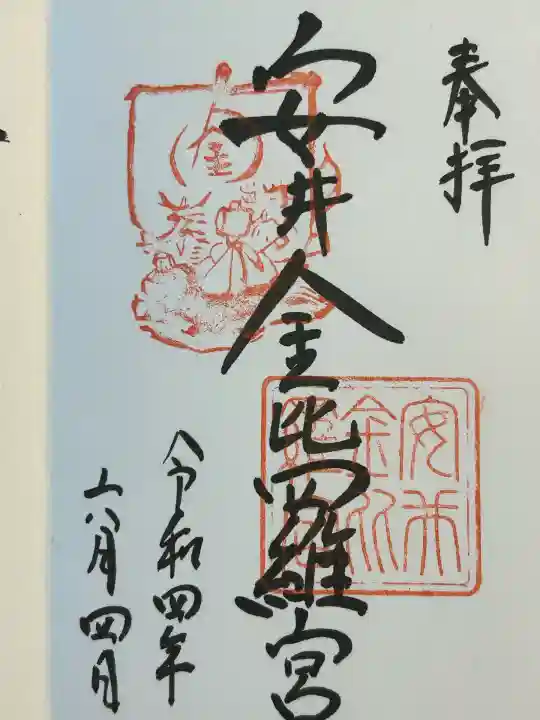 奉拝
安井金毘羅宮
令和四年
六月四日
安井金